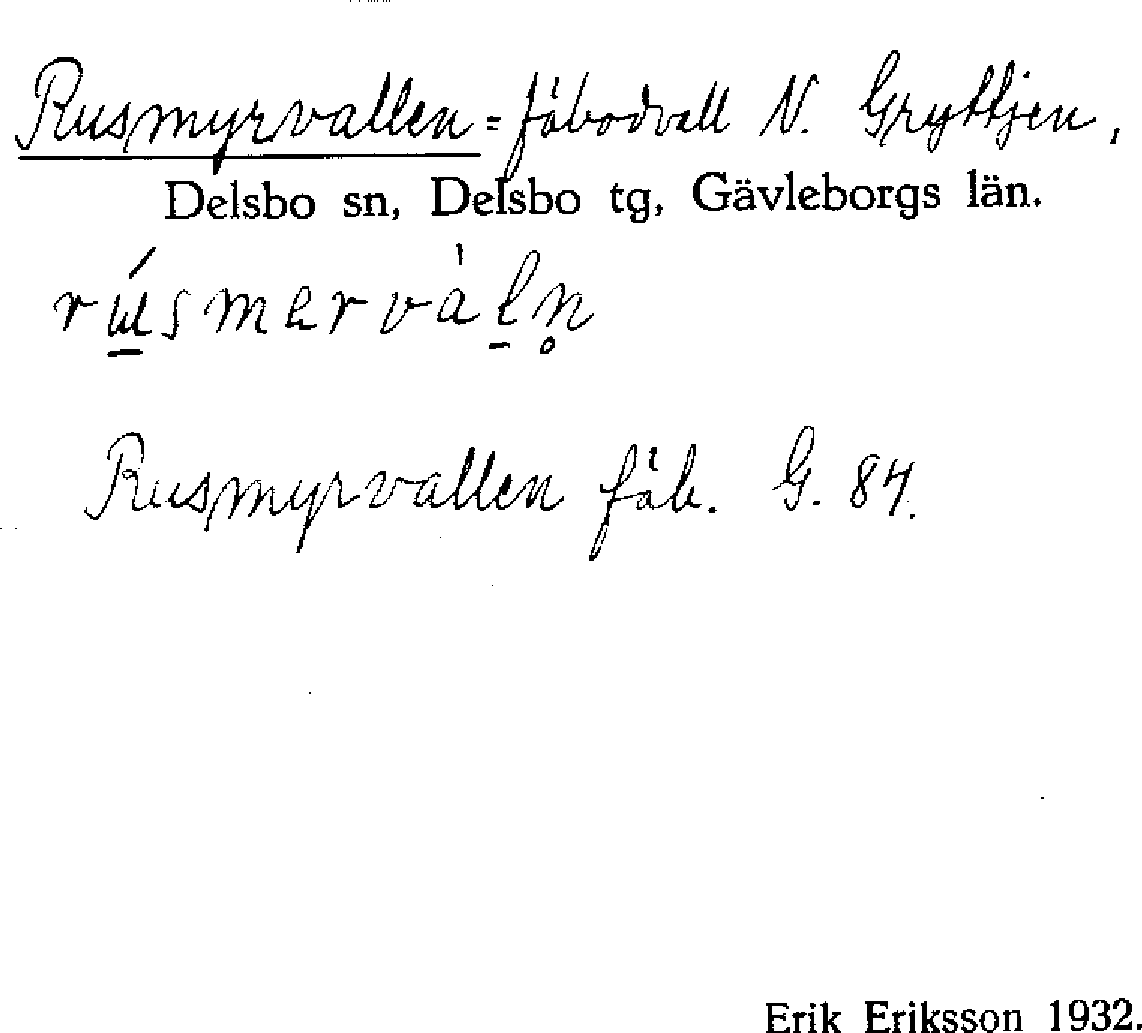 Rusmyrvallen = fäbodvall N. Gryttjen,
Delsbo sn, Delsbo tg, Gävleborgs län.
Rusmyrvallen fäb. G. 84.
Erik Eriksson 1932.